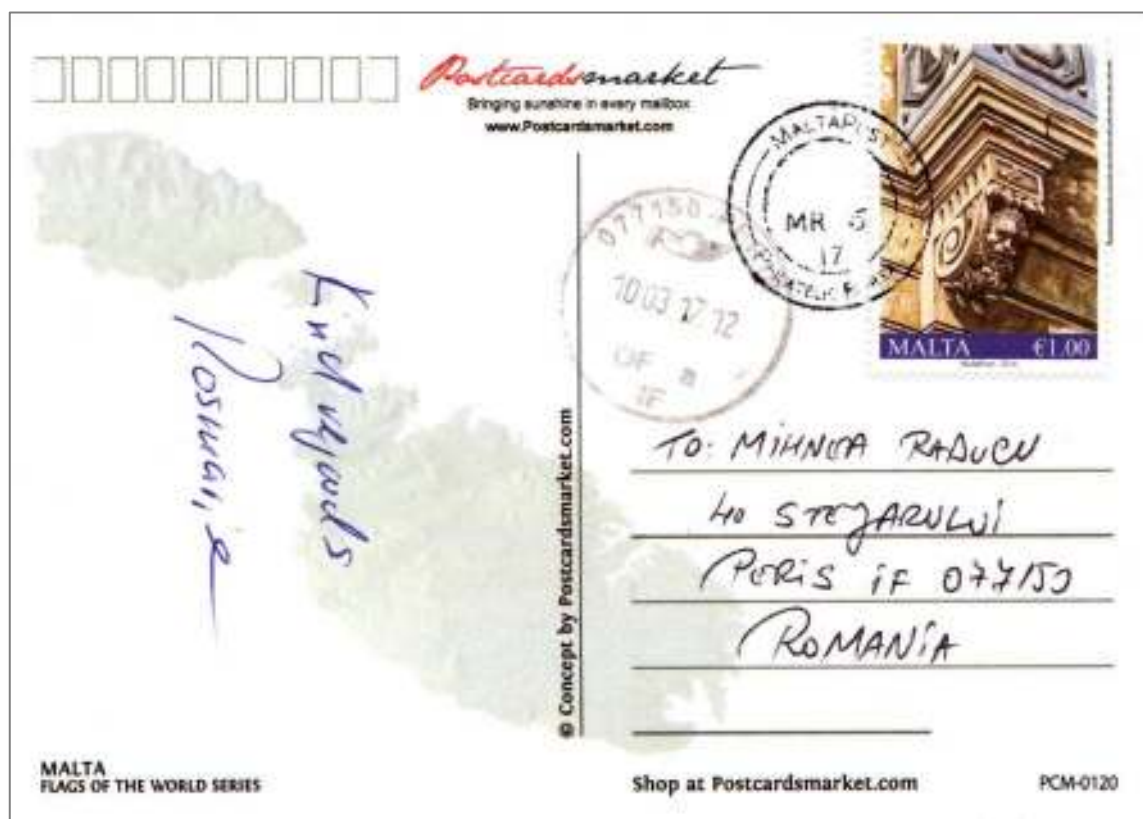 Postcardsmarket
Bringing sunshine in every mailbox
www.Postcardsmarket.com
MALTAPOST
MR 5
17
077150
10 03 17 12
IF
MALTA €1.00
Kind regards
Rosmarie
© Concept by Postcardsmarket.com
TO: MIHNEA RADUCU
40 STEJARULUI
PERIS IF 077150
ROMANIA
MALTA
FLAGS OF THE WORLD SERIES
Shop at Postcardsmarket.com
PCM-0120